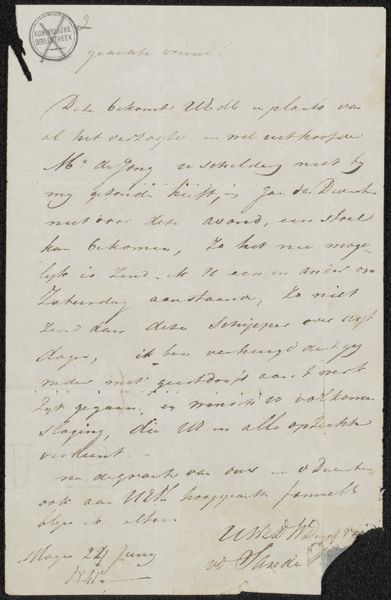 KONINKLIJKE
BIBLIOTHEEK
2
Geachte vriend!
Deze bekomt UEd in plaats van
al het verzogte en wel uit hoofde
Mr de Jong schilderij niet by
my gezonden heeft, Jan
niet voor deze avond, een stoel
kan bekomen, Zo het nu moge-
lyk is zend ik U een en ander op
Zaturdag aanstaande, Zo niet
Zend dan deze schipper over acht
dagen, ik ben verheugd dat gy
weder met aan 't werk
zyt gegaan, en U volkome
slaging, die UE in alle opzichte
verdient.
na de groete van ons en
ook aan UEd hooggeachte famielle
blyve ik altoos
UEd
vd Sande
Hage 24 Juny